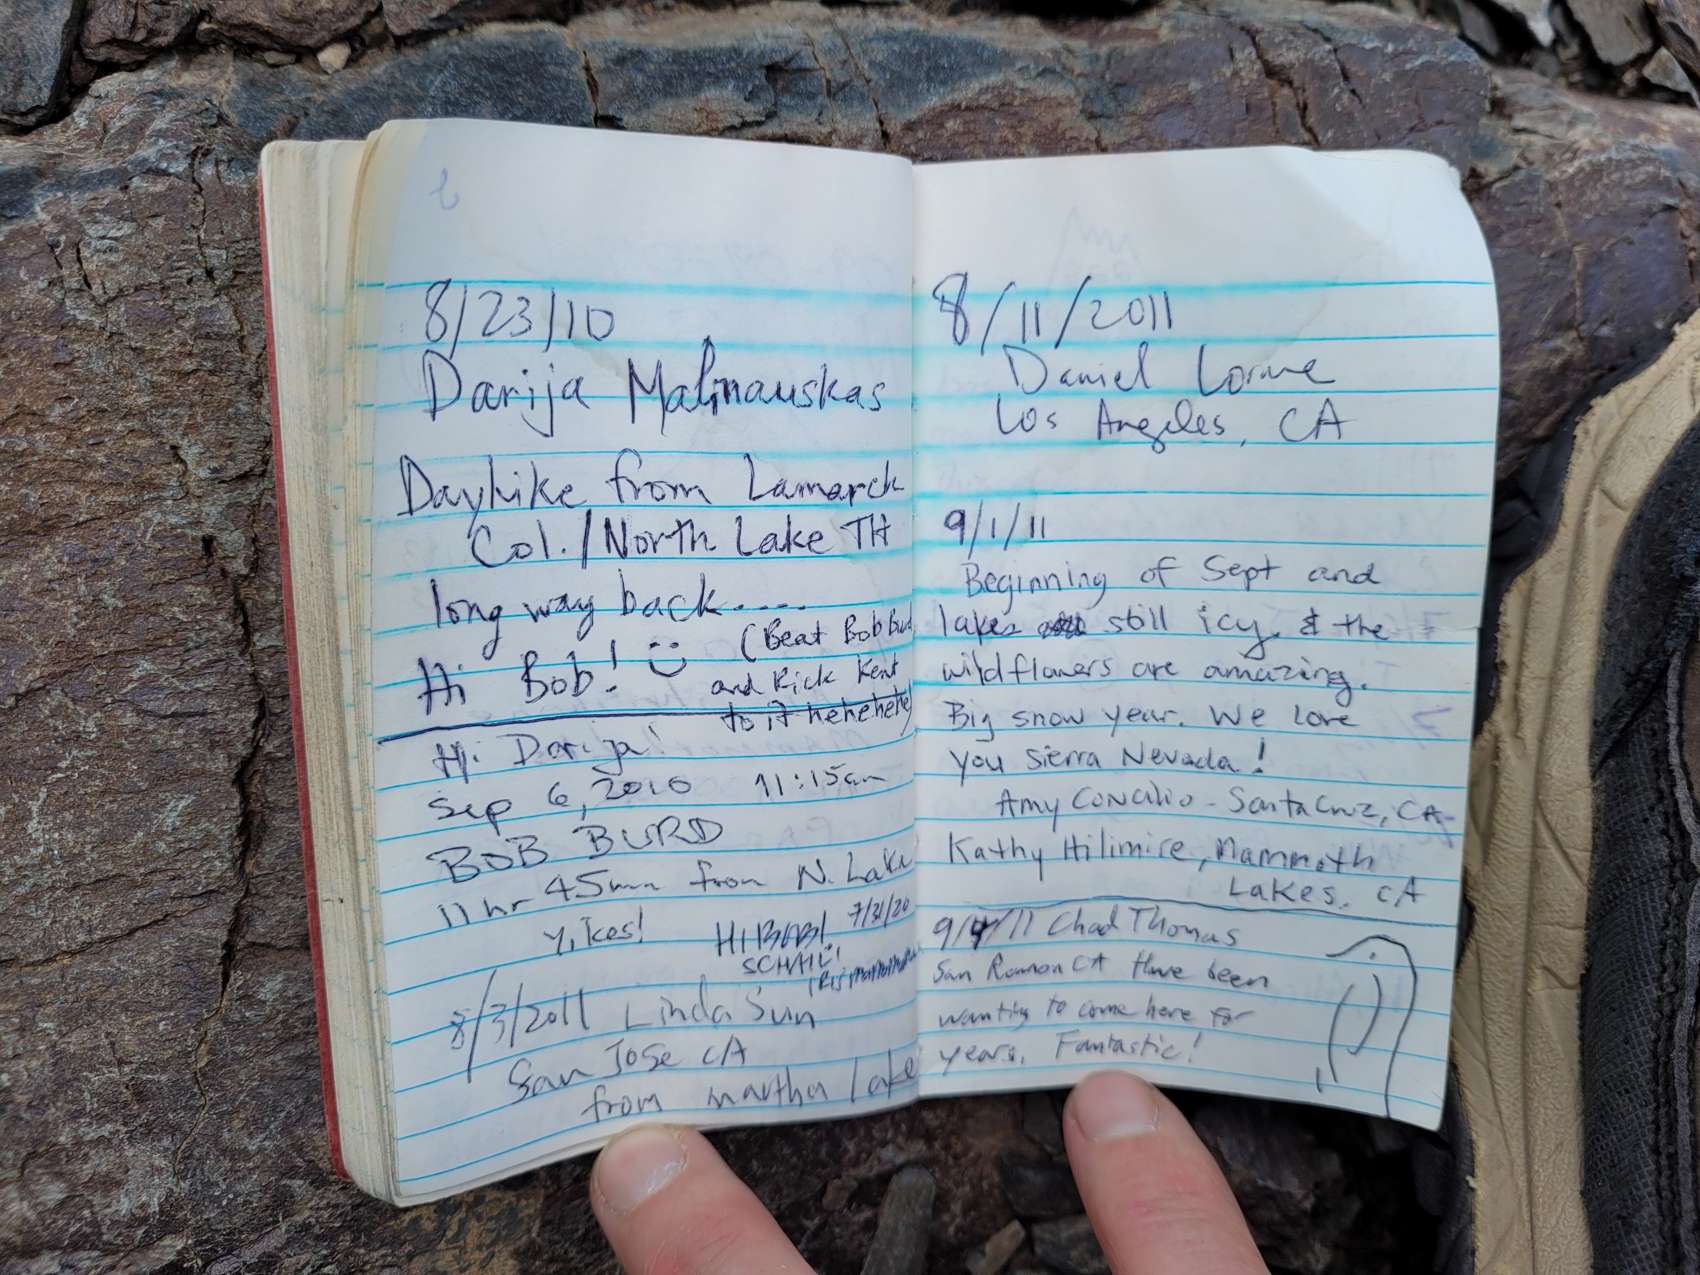 8/23/10
Darija Malinauskas
Dayhike from Lamarck
Col./North Lake TH
long way back.....
Hi Bob! :) (Beat Bob Burd
and Rick Kent
to it hehehehe)
Hi Darija!
Sep 6, 2010 11:15am
BOB BURD
11hr 45min from N. Lake
Yikes!
HI BOB! 7/31/20
8/3/2011 Linda Sun
San Jose CA
from martha lake
8/11/2011
Daniel Lorme
Los Angeles, CA
9/1/11
Beginning of Sept and
lakes still icy. & the
wildflowers are amazing.
Big snow year. We love
you Sierra Nevada!
Amy Concilio - Santa Cruz, CA
Kathy Hilimire, Mammoth
Lakes, CA
9/4/11 Chad Thomas
San Ramon CA Have been
wanting to come here for
years. Fantastic!